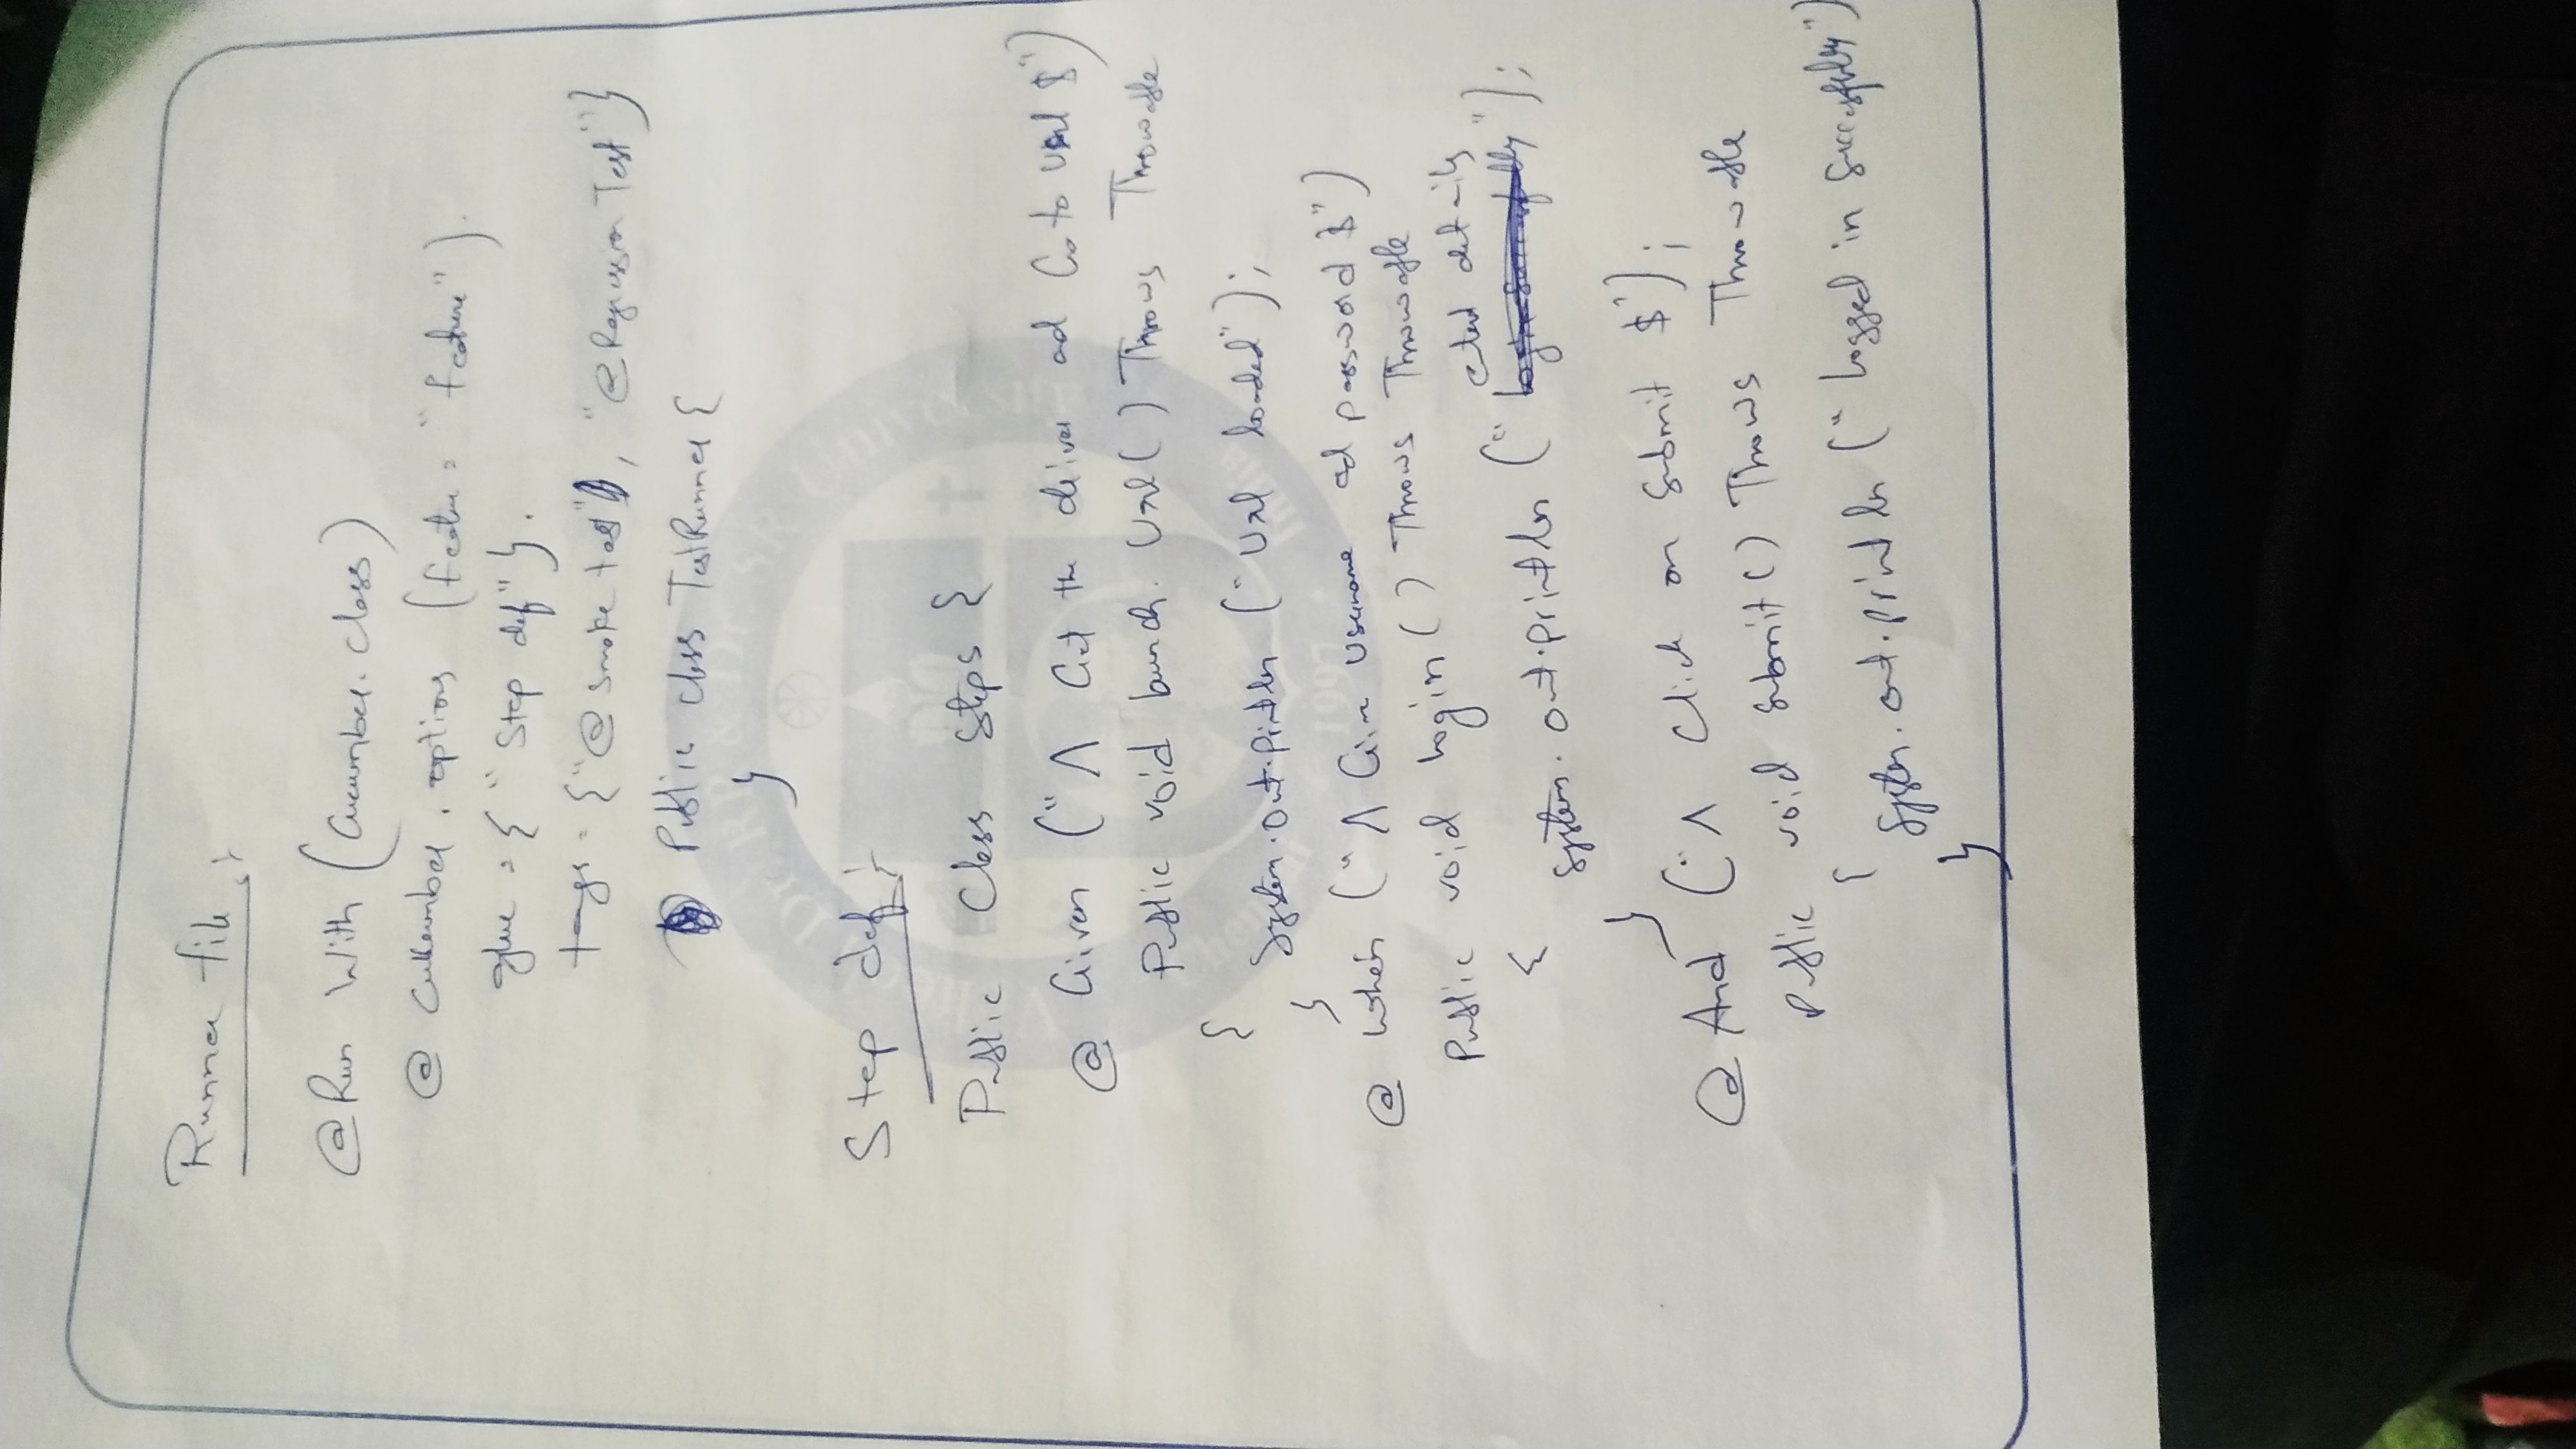 Runner file :-
@Run With (Cucumber.class)
@ Cucumber.options (featu = "feature").
glue = { "Step def" }.
tags = { "@ smoke test", "@Regression Test" }
Public class TestRunner {
}
Step def :-
Public Class Steps {
@ Given ("^ Get the driver ad Go to Url $")
Public void launch. Url ( ) Throws Throwable
{
System.out.println ("Url loaded");
}
@ When ("^ Give username ad password $")
Public void login ( ) Throws Throwable
{
System.out.println (" details ");
}
@ And ("^ Click on submit $");
Public void submit ( ) Throws Throwable
{
System.out.println (" logged in Successfully")
}
Vel Tech
1997